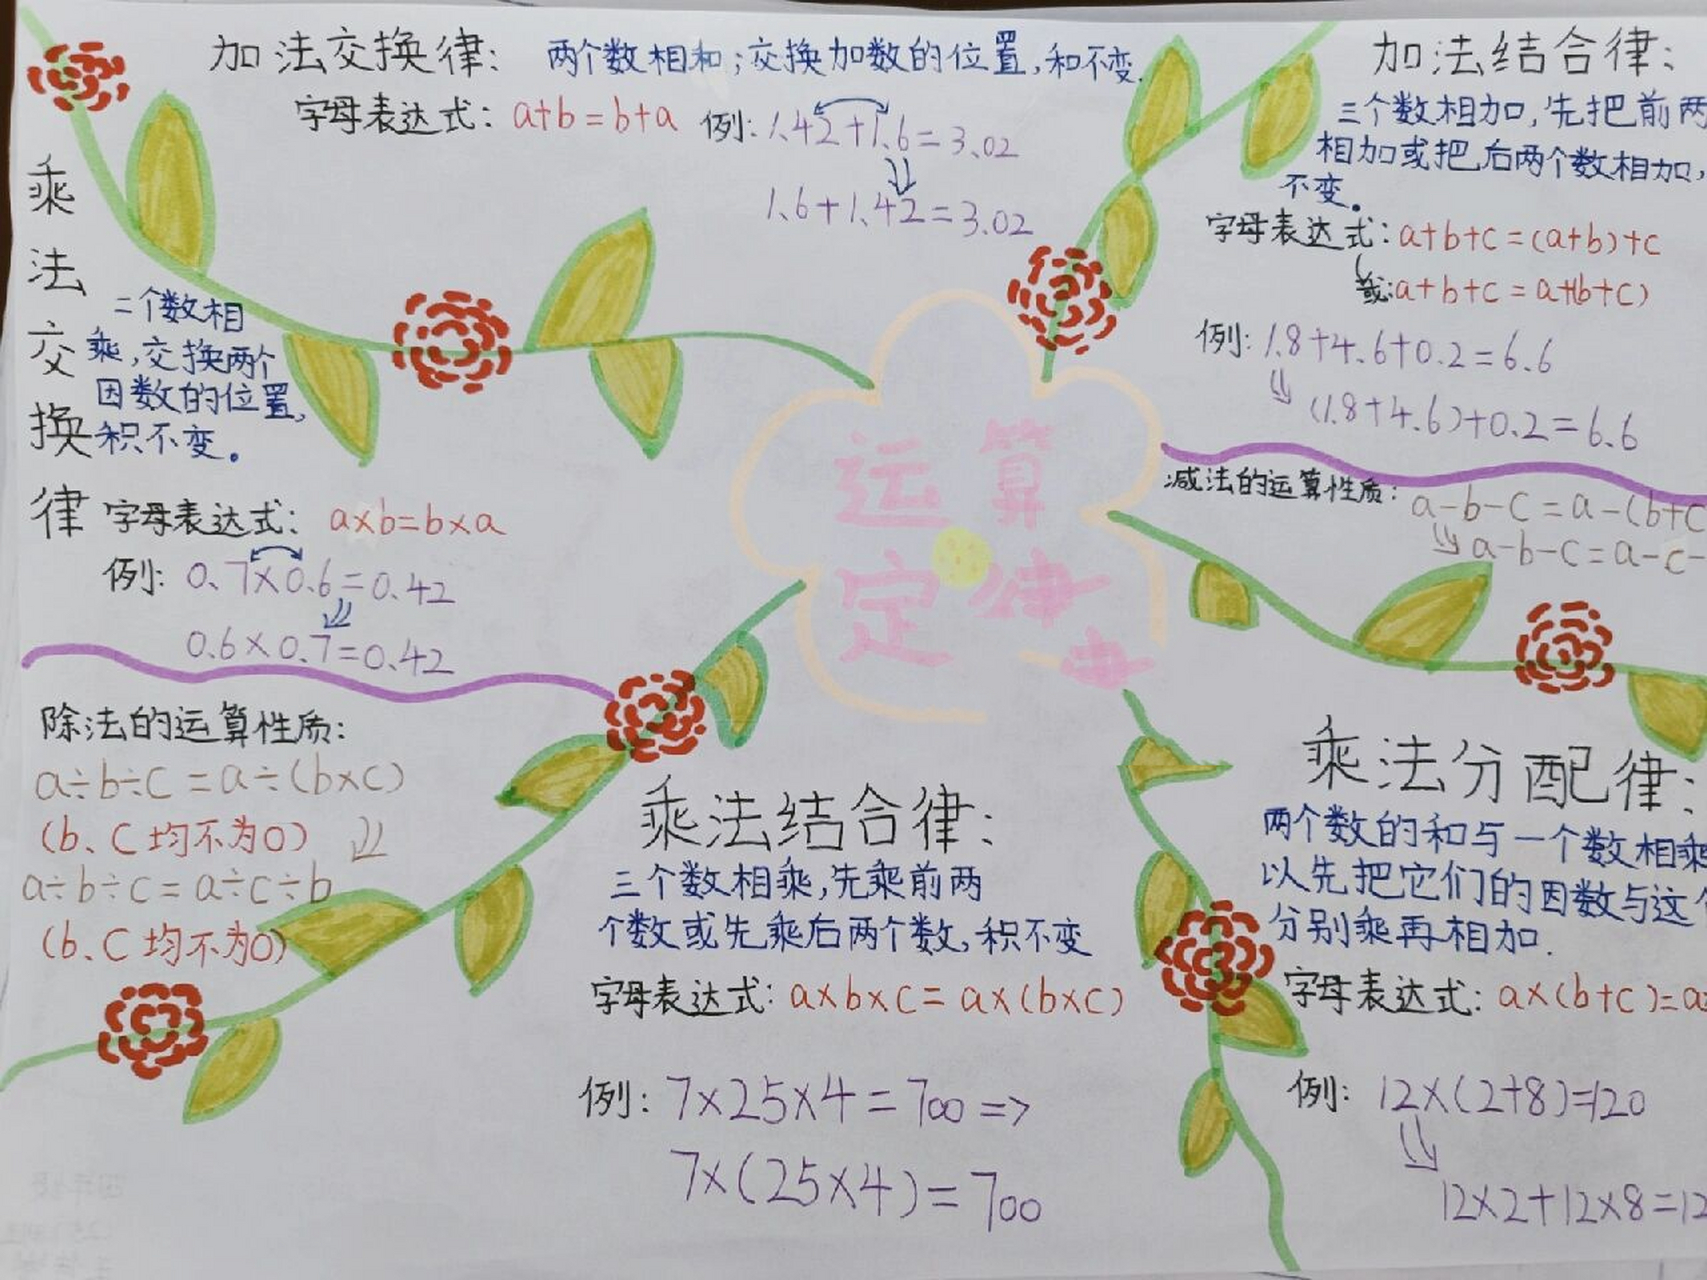 加法交换律:
两个数相和;交换加数的位置,和不变.
字母表达式: a+b=b+a
例: 1.42+1.6=3.02
1.6+1.42=3.02
加法结合律:
三个数相加,先把前两
相加或把后两个数相加,
不变。
字母表达式: a+b+c=(a+b)+c
或:a+b+c=a+(b+c)
例: 1.8+4.6+0.2=6.6
(1.8+4.6)+0.2=6.6
减法的运算性质:
a-b-c=a-(b+c
a-b-c=a-c-
运算
定律
乘法交换律
二个数相
乘,交换两个
因数的位置,
积不变。
字母表达式: a×b=b×a
例: 0.7×0.6=0.42
0.6×0.7=0.42
除法的运算性质:
a÷b÷c=a÷(b×c)
(b、c均不为0)
a÷b÷c=a÷c÷b
(b、c均不为0)
乘法结合律:
三个数相乘,先乘前两
个数或先乘后两个数,积不变
字母表达式: a×b×c=a×(b×c)
例: 7×25×4=700=>
7×(25×4)=700
乘法分配律:
两个数的和与一个数相乘
以先把它们的因数与这个
分别乘再相加.
字母表达式: a×(b+c)=a
例: 12×(2+8)=120
12×2+12×8=12